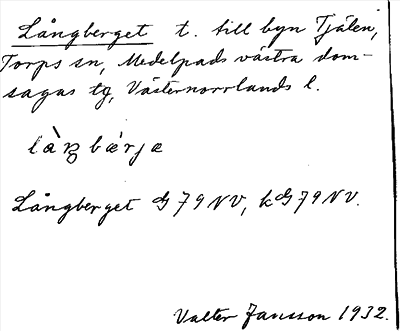 Långberget t. till byn Tjälen,
Torps sn, Medelpads västra dom-
sagas tg, Västernorrlands l.
làꞑbǽrjæ
Långberget G 79 NV, kG 79 NV.
Valter Jansson 1932.